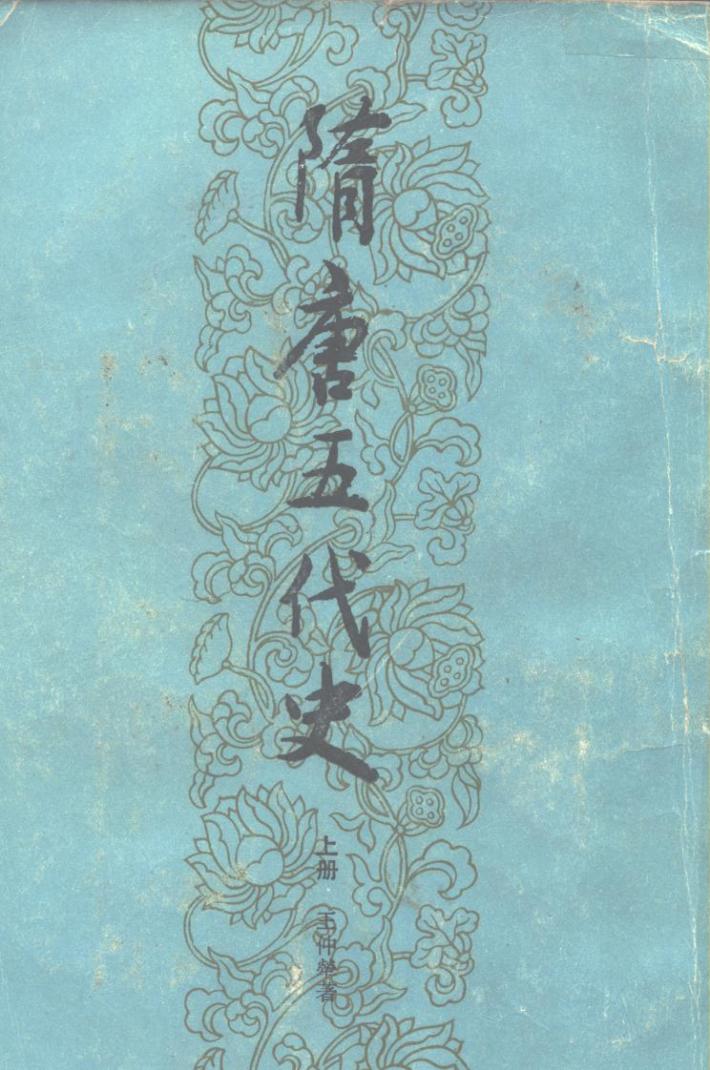 隋唐五代史
上册 王仲犖著